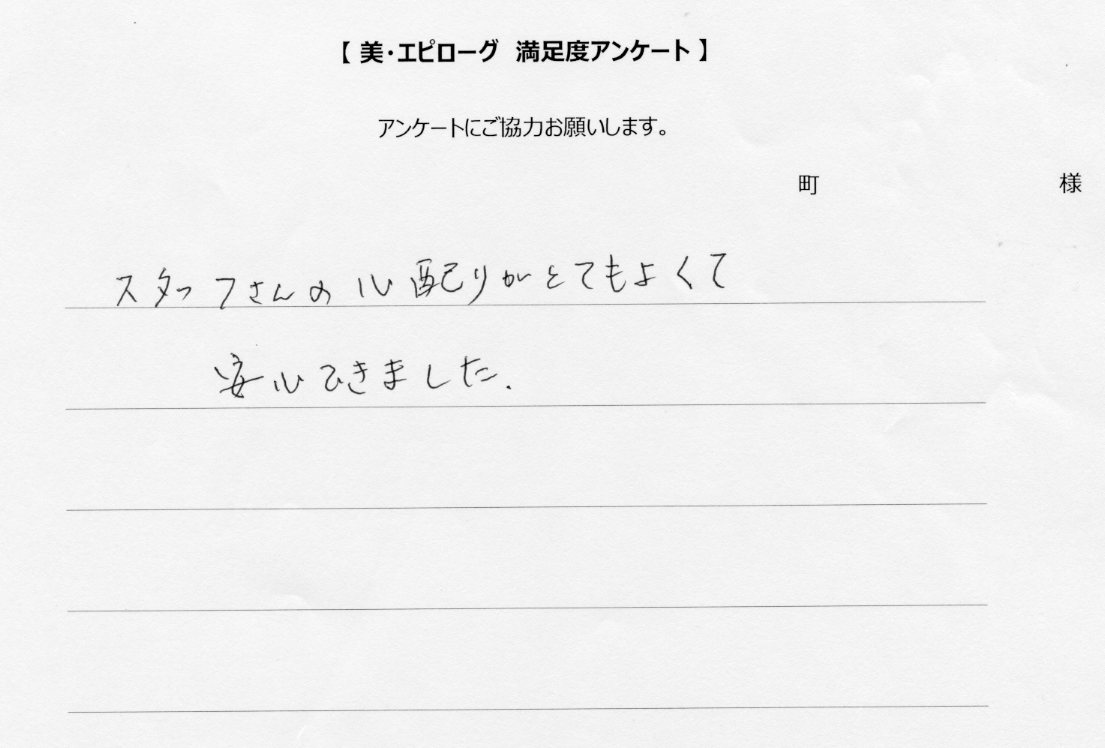 【 美・エピローグ 満足度アンケート 】
アンケートにご協力お願いします。
町 様
スタッフさんの心配りがとてもよくて
安心できました.